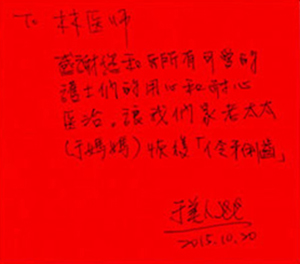 To 林医师
感謝您和所有可愛的
護士們的用心和耐心
医治，讓我們家老太太
(于媽媽) 恢復
2015.10.20